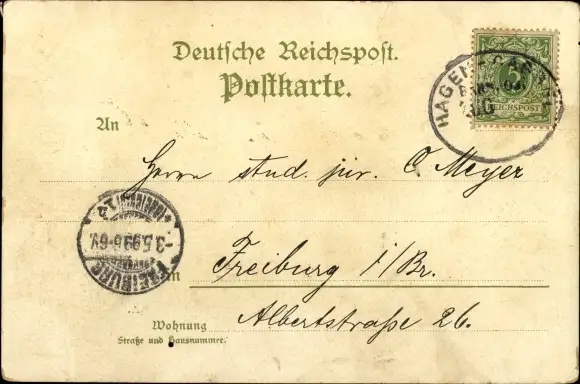 Deutsche Reichspost.
Postkarte.
5
REICHSPOST
HAGEN-CASSEL
BAHNPOST
An
Herrn stud. jur. O. Meyer
FREIBURG
-3.5.99.6-6
(BREISGAU)
in
Freiburg i/Br.
Wohnung
Straße und Hausnummer.
Albertstraße 26.